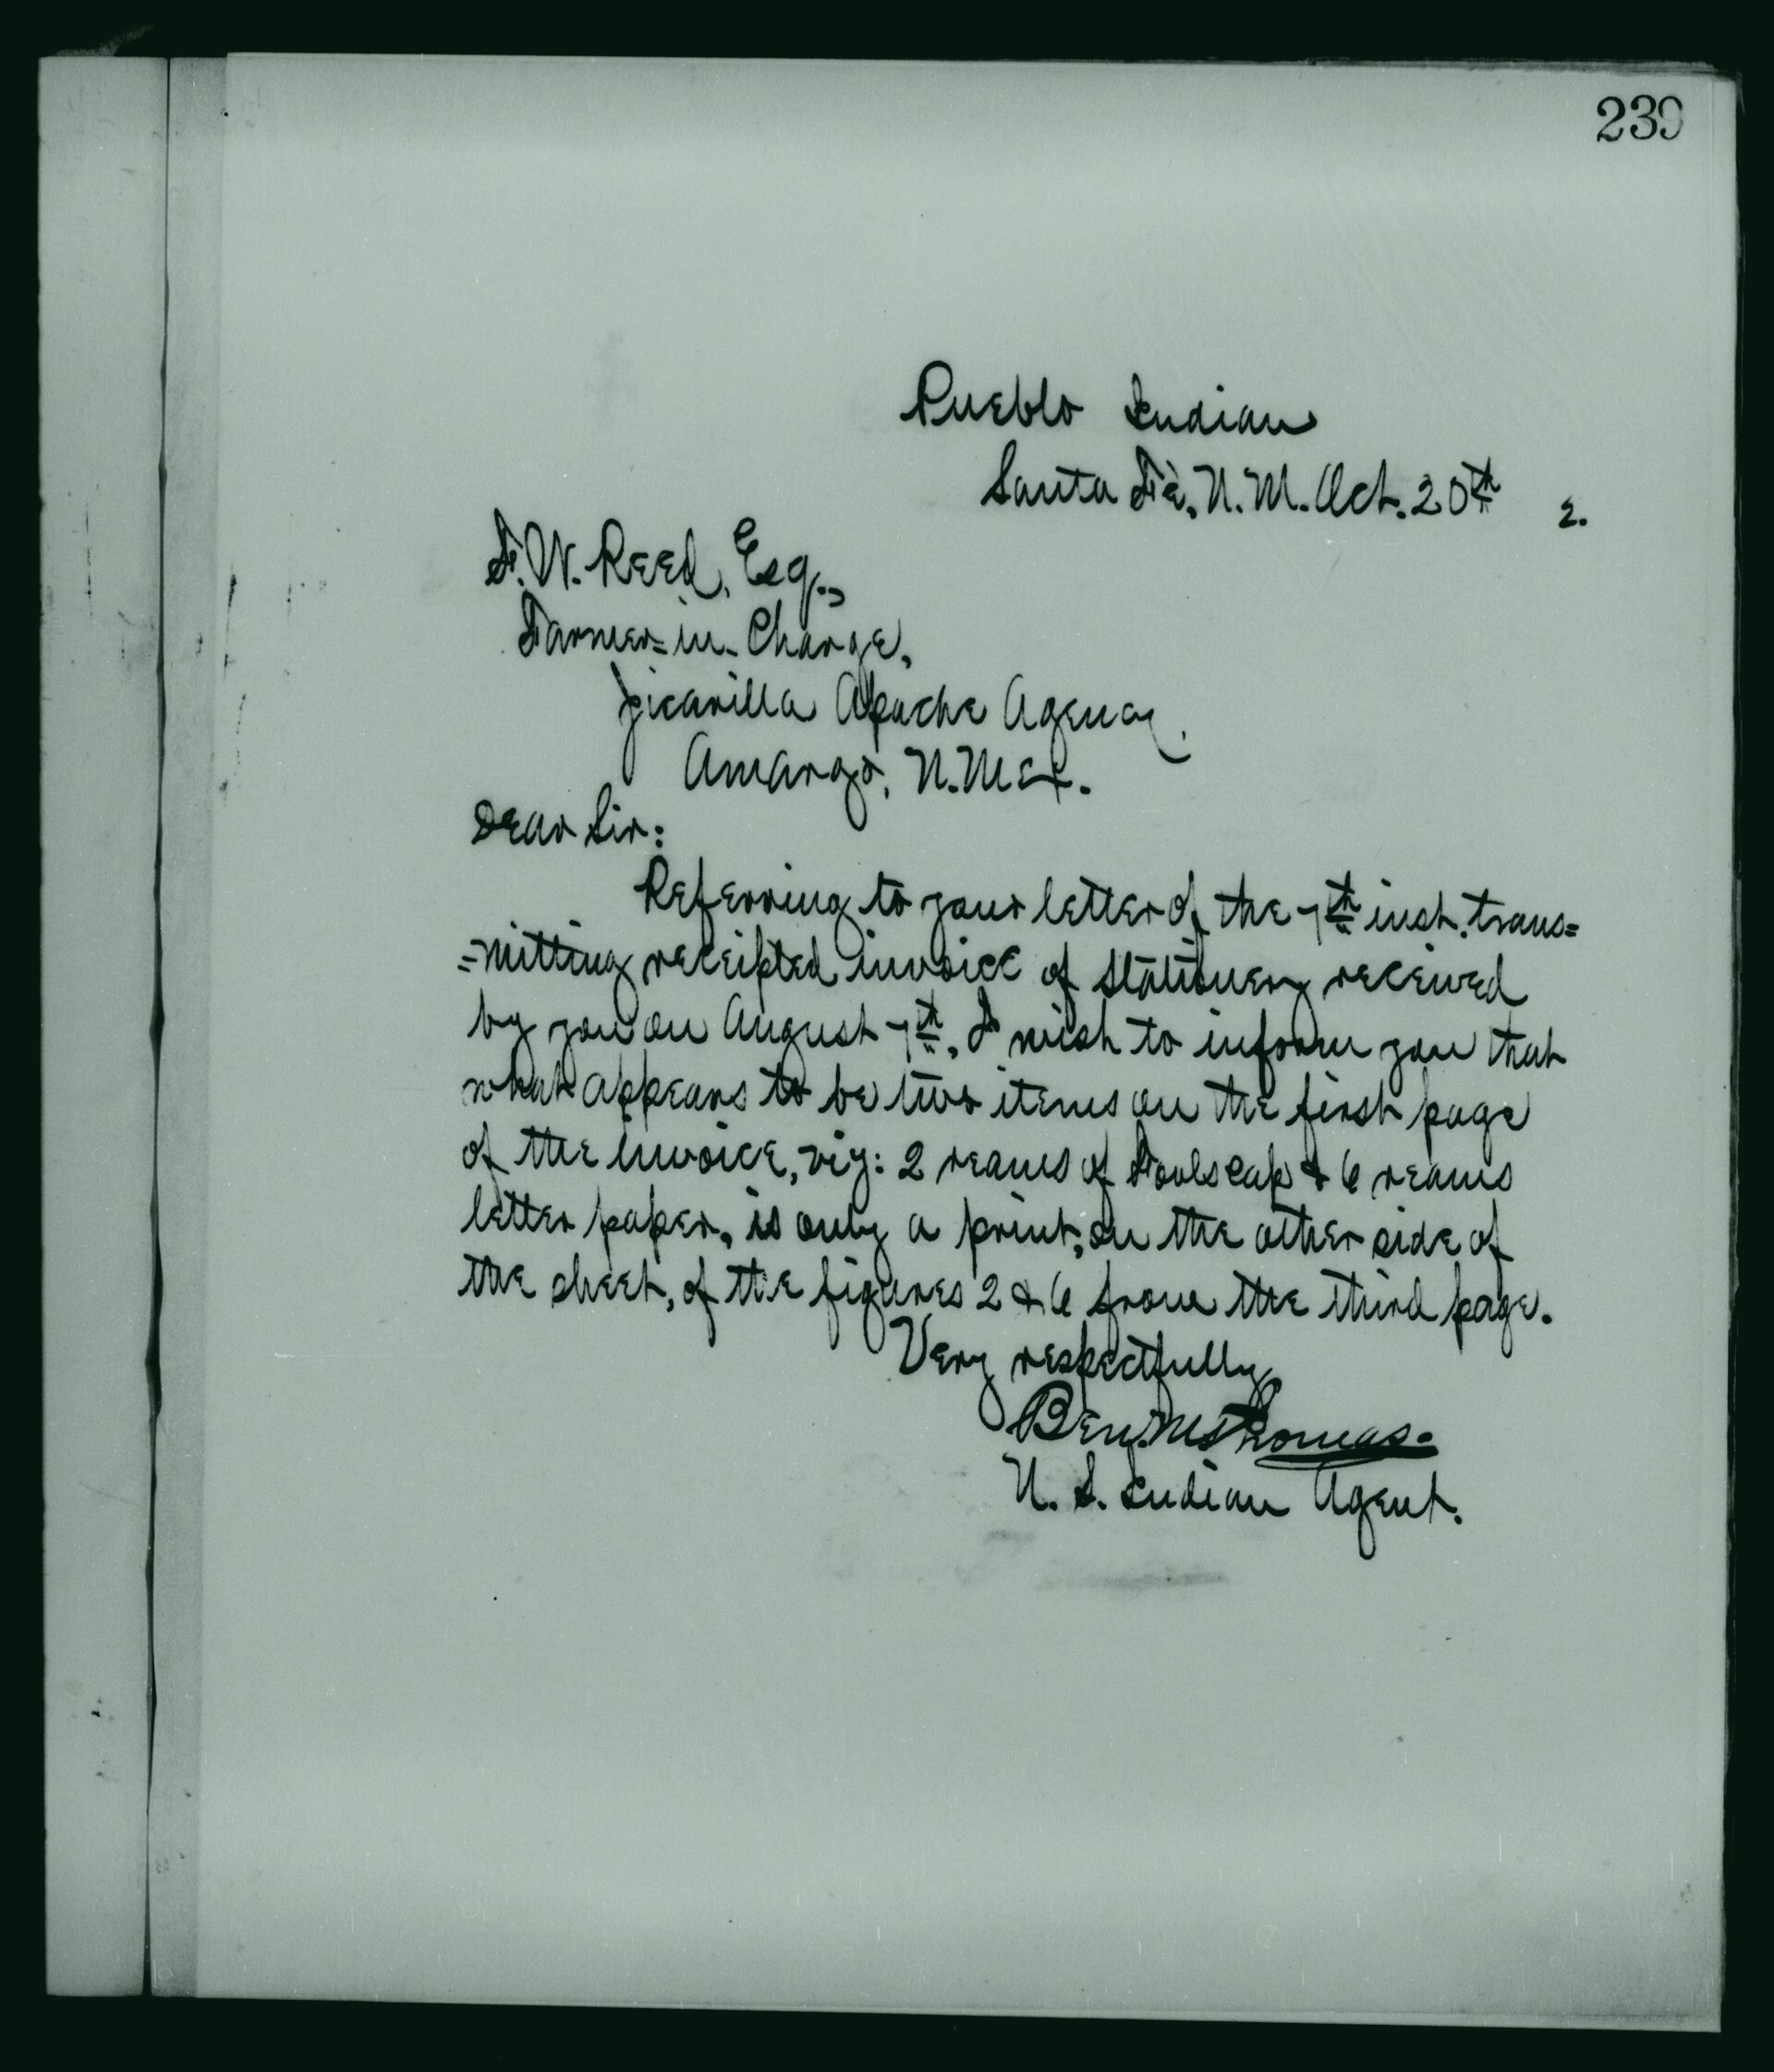 239
Pueblo Indian
Santa Fé, N. M. Oct. 20th 2.
F. W. Reed, Esq.,
Farmer=in-Charge,
Jicarilla Apache Agency,
Amargo, N. Mex.
Dear Sir:
Referring to your letter of the 7th inst. trans=
=mitting receipted invoice of stationery received
by you on August 7th, I wish to inform you that
what appears to be two items on the first page
of the invoice, viz: 2 reams of Foolscap & 6 reams
letter paper, is only a print, on the other side of
the sheet, of the figures 2 & 6 from the third page.
Very respectfully,
Ben. M. Thomas.
U. S. Indian Agent.